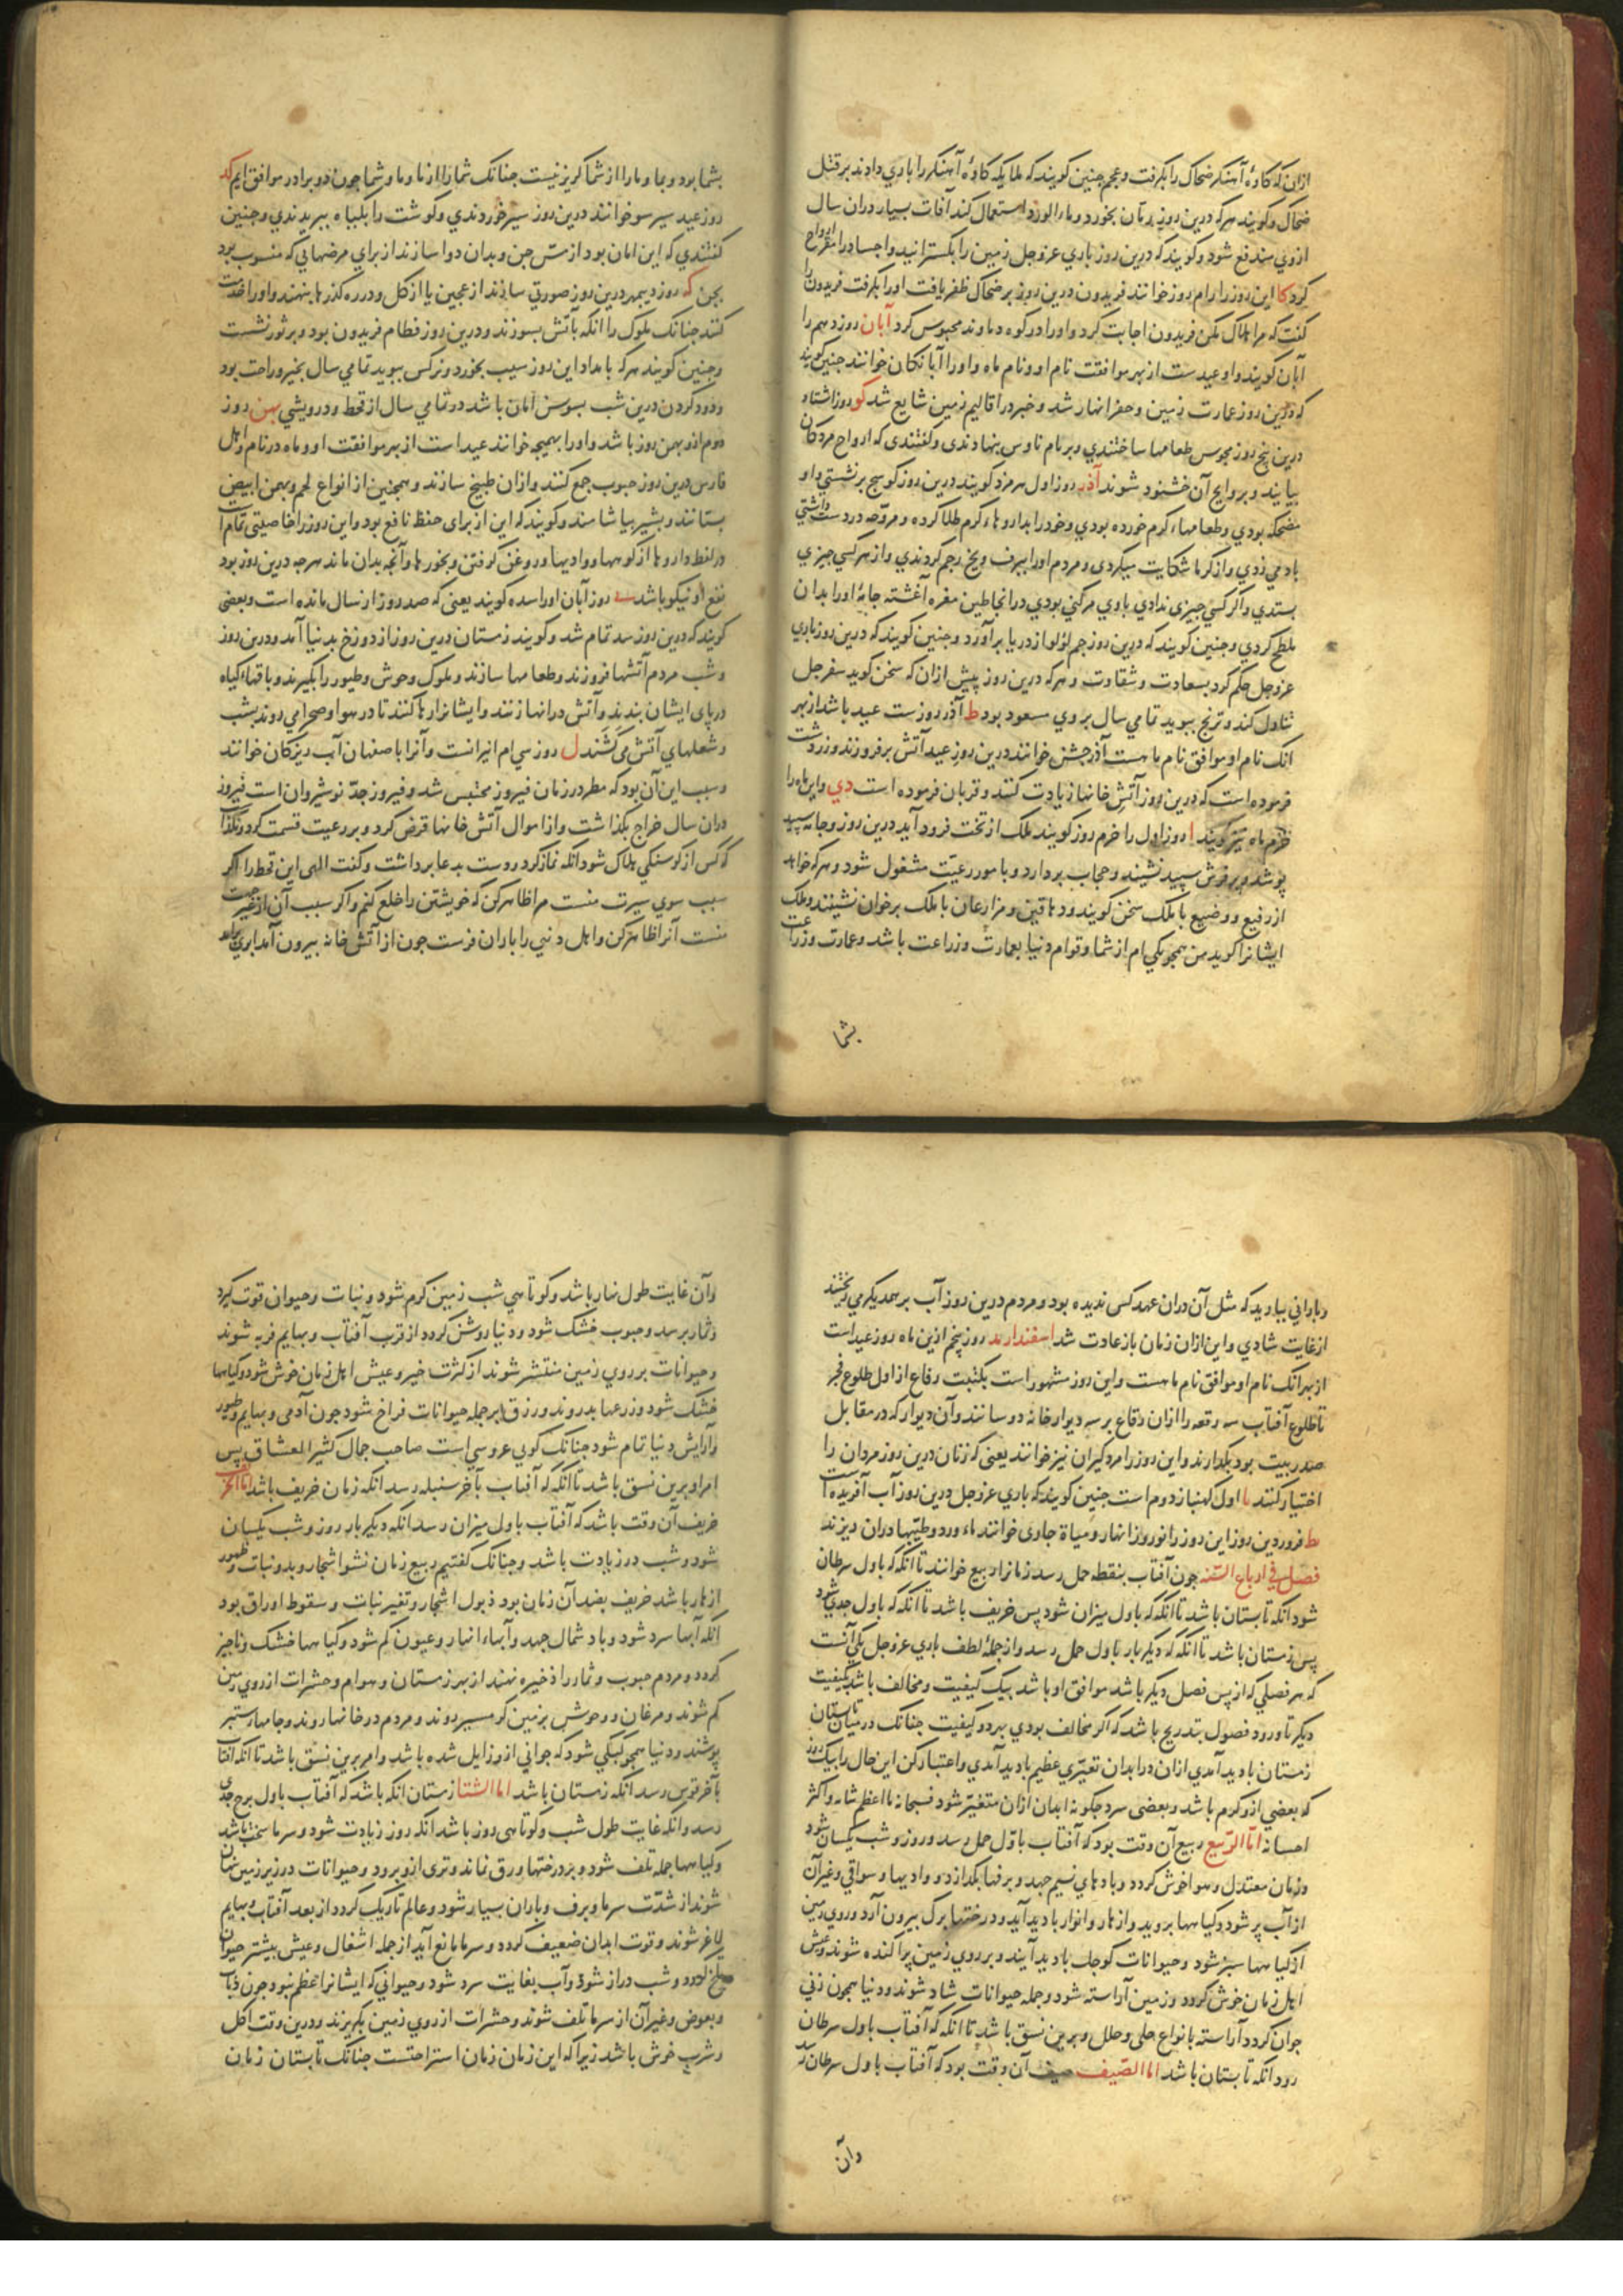 ازان که کاوهٔ آهنگر ضحاک را بکرفت و عجم چنین کویند که ملایکه کاوهٔ آهنکر را یاری دادند بر قتل
ضحاک و کویند هرکه درین روز بخورد و ماء الورد استعمال کند آفات بسیار دران سال
ازوی مندفع شود و کویند که درین روز باری عزوجل زمین را بکسترانید و اجساد را مقر ارواح
کرد کا این روز را رام روز خوانند فریدون درین روز بر ضحاک ظفر یافت او را بکرفت فریدون را
کفت که مرا هلاک مکن فریدون اجابت کرد و او را در کوه دماوند محبوس کرد آبان روز دهم را
آبان کویند و او عیدست از بهر موافقت نام او و نام ماه و او را آبانکان خوانند جنین کویند
که درین روز عمارت زمین و حفر انهار شد و خبر در اقالیم زمین شایع شد کو روز اشتاد
درین پنج روز مجوس طعامها ساختندی و بر بام ناوس بنهادندی و کفتندی که ارواح مردکان
بیایند و بروایح آن خشنود شوند آذر روز اول هرمزد کویند درین روز کوسج برنشستی و او
مضحکه بودی و طعامهاء کرم خورده بودی و خود را بداروهاء کرم طلا کرده و مروحه در دست داشتی
باد می زدی و از کرما شکایت میکردی و مردم او را ببرف و یخ رجم کردندی و از هرکسی جیزی
بستدی و اکر کسی جیزی ندادی باوی مرکنی بودی درانجا طین مغره آغشته جامهٔ او را بدان
ملطخ کردی و جنین کویند که درین روز جم لؤلؤ از دریا برآورد و جنین کویند که درین روز باری
عزوجل حکم کرد بسعادت و شقاوت و هرکه درین روز پیش ازان که سخن کوید سفرجل
تناول کند و ترنج ببوید تمامی سال بر وی مسعود بود ط آذر روزست عید باشد از بهر
انک نام او موافق نام ماهست آذرجشن خوانند درین روز عید آتش برفروزند و زردشت
فرموده است که درین روز آتش خانها زیادت کنند و قربان فرموده است دی و این ماه را
خرم ماه نیز کویند ا روز اول را خرم روز کویند ملک از تخت فرود آید درین روز و جامه سپید
پوشد و بر فرش سپید نشیند و حجاب بردارد و بامور رعیت مشغول شود و هرکه خواهد
از رفیع و وضیع با ملک سخن کویند و دهاقین و مزارعان با ملک بر خوان نشینند و ملک
ایشانرا کوید من همجو یکی ام از شما و قوام دنیا بعمارت و زراعت باشد و عمارت و زراعت
بشما
بشما بود و بما و ما را از شما کریز نیست جنانک شما را از ما و ما و شما جون دو برادر موافق ایم کد
روز عید سیر سو خوانند درین روز سیر خوردندی و کوشت را ببریدندی و جنین
کفتندی که این امان بود از مس جن و بدان دوا سازند از برای مرضهایی که منسوب بود
بجن که روز دیبمهر درین روز صورتی سازند از عجین یا از کل و در ره کذرها بنهند و او را خدمت
کنند جنانک ملوک را انکه بآتش بسوزند و درین روز فطام فریدون بود و بر ثور نشست
و جنین کویند هرکه بامداد این روز سیب بخورد و نرکس ببوید تمامی سال بخیر و راحت بود
و دود کردن درین شب بسوسن امان باشد در تمامی سال از قحط و درویشی بهمن روز
دوم ازو بهمن روز باشد و او را بهمنجه خوانند عید است از بهر موافقت او و ماه در نام و اهل
فارس درین روز حبوب جمع کنند و ازان طبیخ سازند و همجنین از انواع لحم و بهمن ابیض
بستانند و بشیر بیاشامند و کویند که این از برای حفظ نافع بود و این روز را خاصیتی تمام است
در لقط داروها از کوهها و وادیها و روغن کرفتن و بخورها و آنجه بدان ماند هرجه درین روز بود
نفع او نیکو باشد روز آبان او را سده کویند یعنی که صد روز از سال مانده است و بعضی
کویند که درین روز سد تمام شد و کویند زمستان درین روز از دوزخ بدنیا آمد و درین روز
و شب مردم آتشها فروزند و طعامها سازند و ملوک وحوش و طیور را بکیرند و باقهاء کیاه
در پای ایشان بندند و آتش درانها زنند و ایشانرا رها کنند تا در هوا و صحرا می دوند بشب
و شعلهای آتش می کشند ل روز سی ام انیرانست و آنرا باصفهان آب ریزکان خوانند
و سبب این آن بود که مطر در زمان فیروز محتبس شد و فیروز جد نوشیروان است فیروز
دران سال خراج بکذاشت و از اموال آتش خانها قرض کرد و بر رعیت قسمت کرد و نکذاشت
که کس از کرسنکی هلاک شود انکه نماز کرد و دست بدعا برداشت و کفت الهی این قحط را اکر
سبب سوی سیرت منست مرا ظاهر کن که خویشتن را خلع کنم و اکر سبب آن از غیر جهت
منست آنرا ظاهر کن و اهل دنیی را باران فرست جون از آتش خانه بیرون آمد ابری برآمد
و بارانی ببارید که مثل آن دران عهد کس ندیده بود و مردم درین روز آب بر همدیکر می ریختند
از غایت شادی و این ازان زمان باز عادت شد اسفندارمد روز پنجم ازین ماه روز عیدست
از بهر انک نام او موافق نام ماهست و این روز مشهور است بکتبت رقاع از اول طلوع فجر
تا طلوع آفتاب سه رقعه را ازان رقاع بر سه دیوار خانه دوسانند و آن دیوار که در مقابل
صدر بیت بود بکذارند و این روز را مردکیران نیز خوانند یعنی که زنان درین روز مردان را
اختیار کنند یا اول کهنبار دوم است جنین کویند که باری عزوجل درین روز آب آفریده است
یط فروردین روز این روز را نوروز انهار و میاه جاری خوانند ماء ورد و طیبها دران ریزند
فصل فی ارباع السنه جون آفتاب بنقطه حمل رسد زمانرا ربیع خوانند تا انکه که باول سرطان
شود انکه تابستان باشد تا انکه که باول میزان شود پس خریف باشد تا انکه که باول جدی شود
پس زمستان باشد تا انکه که دیکر بار باول حمل رسد و از جملهٔ لطف باری عزوجل یکی آنست
که هر فصلی که از پس فصل دیکر باشد موافق او باشد بیک کیفیت و مخالف باشد بکیفیت
دیکر تا ورود فصول بتدریج باشد که اکر مخالف بودی بهر دو کیفیت جنانک در میان تابستان
زمستان بادید آمدی ازان در ابدان تغیری عظیم بادید آمدی و اعتبار کن این حال را بیک روز
که بعضی ازو کرم باشد و بعضی سرد جکونه ابدان ازان متغیر شود فسبحانه ما اعظم شانه و اکثر
احسانه اما الربیع ربیع آن وقت بود که آفتاب باول حمل رسد و روز و شب یکسان شود
و زمان معتدل و هوا خوش کردد و بادهای نسیم جهد و برفها بکدازد و وادیها و سواقی و غیر آن
از آب پر شود و کیاهها بروید و ازهار و انوار بادید آید و درختها برک بیرون آرد و روی زمین
از کیاهها سبز شود و حیوانات کوجک بادید آیند و بر روی زمین پراکنده شوند و عیش
اهل زمان خوش کردد و زمین آراسته شود و جمله حیوانات شاد شوند و دنیا همجون زنی
جوان کردد آراسته بانواع حلی و حلل و برین نسق باشد تا انکه که آفتاب باول سرطان
رود انکه تابستان باشد اما الصیف صیف آن وقت بود که آفتاب باول سرطان رسد
وآن
وآن غایت طول نهار باشد و کوتاهی شب زمین کرم شود و نبات و حیوان قوت کیرد
و ثمار برسد و حبوب خشک شود و دنیا روشن کردد از قرب آفتاب و بهایم فربه شوند
و حیوانات بر روی زمین منتشر شوند از کثرت خیر و عیش اهل زمان خوش شود و کیاهها
خشک شود و زرعها بدروند و رزق بر جمله حیوانات فراخ شود جون آدمی و بهایم و طیور
و آرایش دنیا تمام شود جنانک کویی عروسی است صاحب جمال کثیر العشاق پس
امر او برین نسق باشد تا انکه که آفتاب بآخر سنبله رسد انکه زمان خریف باشد اما الخریف
خریف آن وقت باشد که آفتاب باول میزان رسد انکه دیکر بار روز و شب یکسان
شود و شب در زیادت باشد و جنانک کفتیم ربیع زمان نشو اشجار و بدو نبات و ظهور
ازهار باشد خریف بضد آن زمان بود ذبول اشجار و تغیر نبات و سقوط اوراق بود
انکه آبها سرد شود و باد شمال جهد و آبهاء انهار و عیون کم شود و کیاهها خشک و ناجیز
کردد و مردم حبوب و ثمار را ذخیره نهند از بهر زمستان و هوام و حشرات از روی زمین
کم شوند و مرغان و وحوش بزمین کرمسیر روند و مردم در خانها روند و جامهاء ستبر
پوشند و دنیا همجو کهلی شود که جوانی ازو زایل شده باشد و امر برین نسق باشد تا انکه که آفتاب
بآخر قوس رسد انکه زمستان باشد اما الشتا زمستان انکه باشد که آفتاب باول برج جدی
رسد و انکه غایت طول شب و کوتاهی روز باشد انکه روز زیادت شود و سرما سخت باشد
و کیاهها جمله تلف شود و بر درختها ورق نماند و تری ازو برود و حیوانات در زیر زمین پنهان
شوند از شدت سرما و برف و باران بسیار شود و عالم تاریک کردد از بعد آفتاب و بهایم
لاغر شوند و قوت ابدان ضعیف کردد و سرما مانع آید از جمله اشغال و عیش بیشتر حیوان
تلخ کردد و شب دراز شود و آب بغایت سرد شود و حیوانی که ایشانرا عظم نبود جون ذباب
و بعوض و غیر آن از سرما تلف شوند و حشرات از روی زمین بکریزند و درین وقت اکل
و شرب خوش باشد زیرا که این زمان زمان استراحتست جنانک تابستان زمان